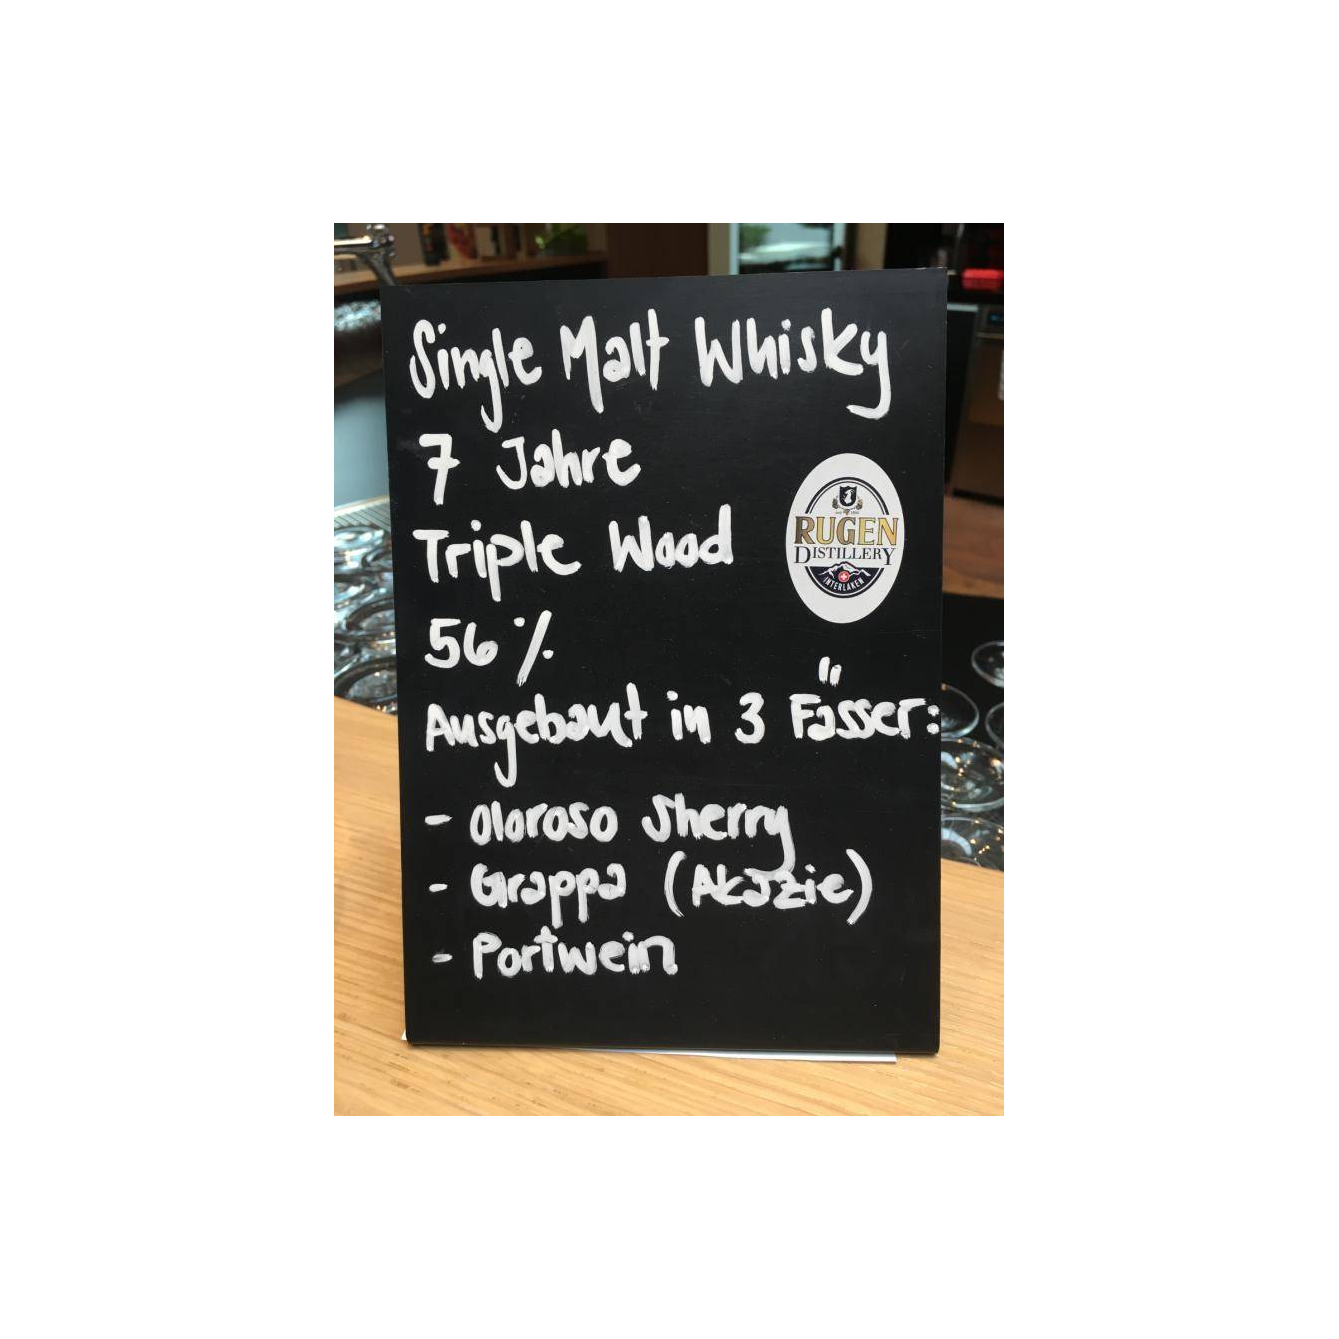 Single Malt Whisky
7 Jahre
Triple Wood
56%
Ausgebaut in 3 Fässer:
- Oloroso Sherry
- Grappa (Akazie)
- Portwein
RUGEN
DISTILLERY
INTERLAKEN